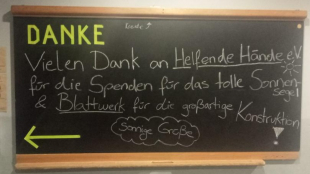 DANKE
Vielen Dank an Helfende Hände e.V.
für die Spenden für das tolle Sonnen-
segel
& Blattwerk für die großartige Konstruktion
Sonnige Grüße